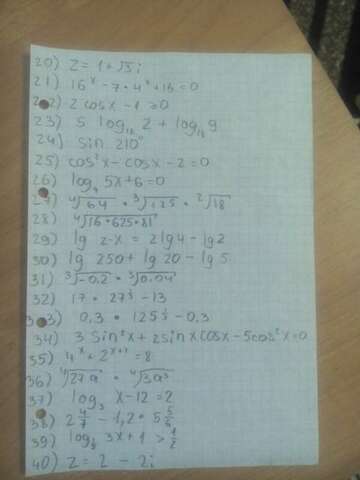 20) Z = 1 + √3 i
21) 16^x - 7 · 4^x + 16 = 0
22) 2 cosx - 1 ≥ 0
23) 5 log₁₂ 2 + log₁₂ 9
24) sin 210°
25) cos²x - cosx - 2 = 0
26) log₄ 5x + 6 = 0
27) ⁴√64 · ³√125 · ²√18
28) ⁴√16 · 625 · 81
29) lg 2-x = 2lg4 - lg2
30) lg 250 + lg 20 - lg 5
31) ³√-0.2 · ³√0.04
32) 17 · 27^⅓ - 13
33) 0,3 · 125^⅓ - 0,3
34) 3 sin²x + 2sin x cosx - 5cos²x = 0
35) 4^x + 2^(x+1) = 8
36) ⁴√27a · ⁴√3a³
37) log₃ x - 12 = 2
38) 2 4/7 - 1,2 · 5 5/6
39) log 3x + 1 > 1/2
40) Z = 2 - 2i